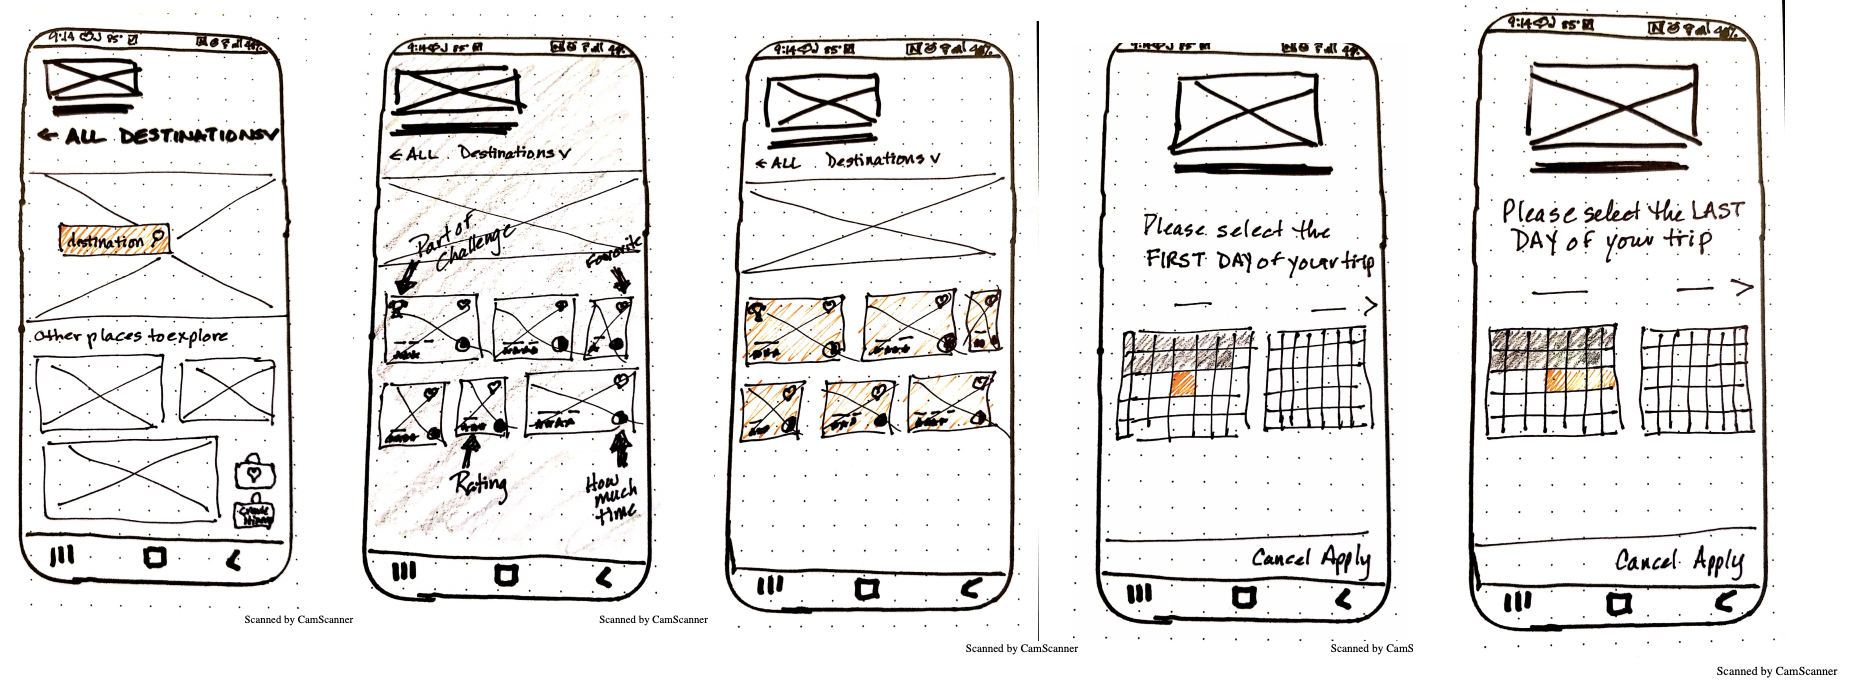 9:14 85°
← ALL DESTINATIONS V
destination
Other places to explore
Scanned by CamScanner
9:14 85°
← ALL Destinations V
Part of
Challenge
Favorite
Rating
How
much
time
Scanned by CamScanner
9:14 85°
← ALL Destinations V
Scanned by CamScanner
9:14 85°
Please select the
FIRST DAY of your trip
Cancel Apply
Scanned by CamS
9:14 85°
Please select the LAST
DAY of your trip
Cancel Apply
Scanned by CamScanner